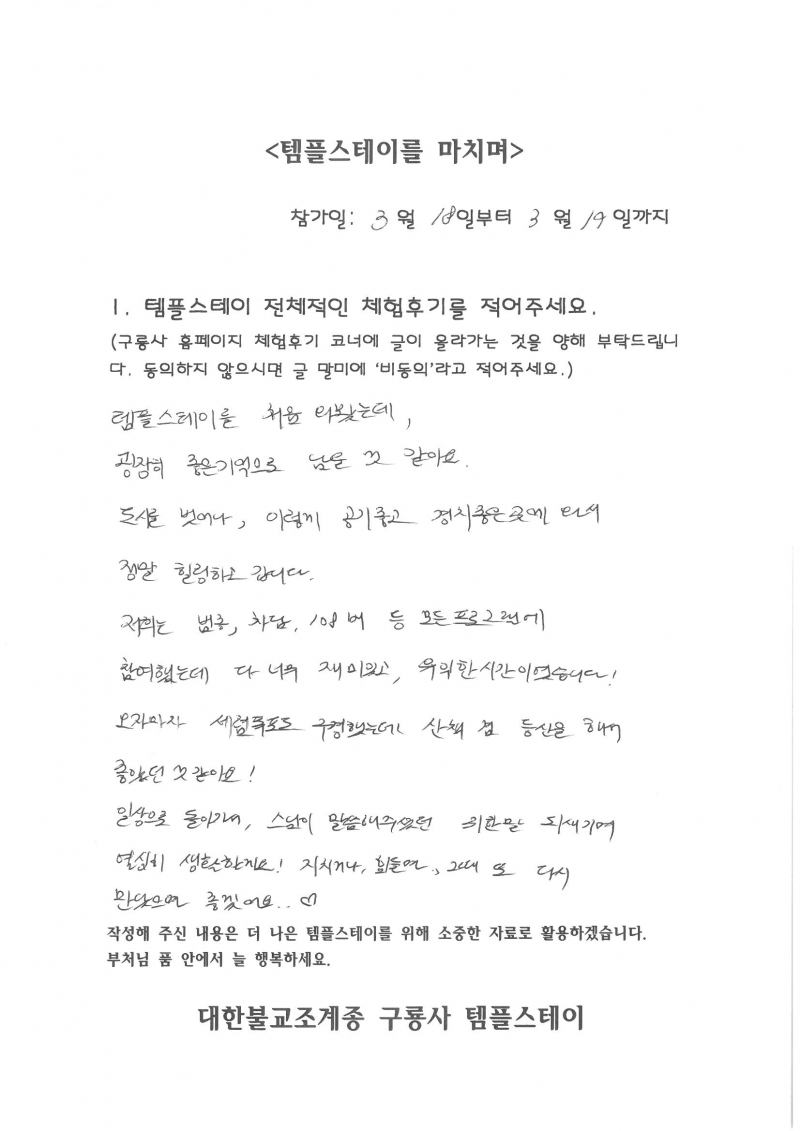 <템플스테이를 마치며>
참가일: 3 월 18일부터 3 월 19일까지
1. 템플스테이 전체적인 체험후기를 적어주세요.
(구룡사 홈페이지 체험후기 코너에 글이 올라가는 것을 양해 부탁드립니
다. 동의하지 않으시면 글 말미에 '비동의'라고 적어주세요.)
템플스테이를 처음 와봤는데,
굉장히 좋은기억으로 남을 것 같아요.
도시를 벗어나, 이렇게 공기좋고 경치좋은곳에 와서
정말 힐링하고 갑니다.
저희는 범종, 차담, 108배 등 모든프로그램에
참여했는데 다 너무 재미있고, 유의한시간이였습니다!
오자마자 세렴폭포도 구경했는데 산책 겸 등산을 해서
좋았던 것같아요!
일상으로 돌아가서, 스님이 말씀해주셨던 귀한말 되새기며
열심히 생활할게요! 지치거나, 힘들면, 그때 또 다시
만났으면 좋겠어요.. ♡
작성해 주신 내용은 더 나은 템플스테이를 위해 소중한 자료로 활용하겠습니다.
부처님 품 안에서 늘 행복하세요.
대한불교조계종 구룡사 템플스테이